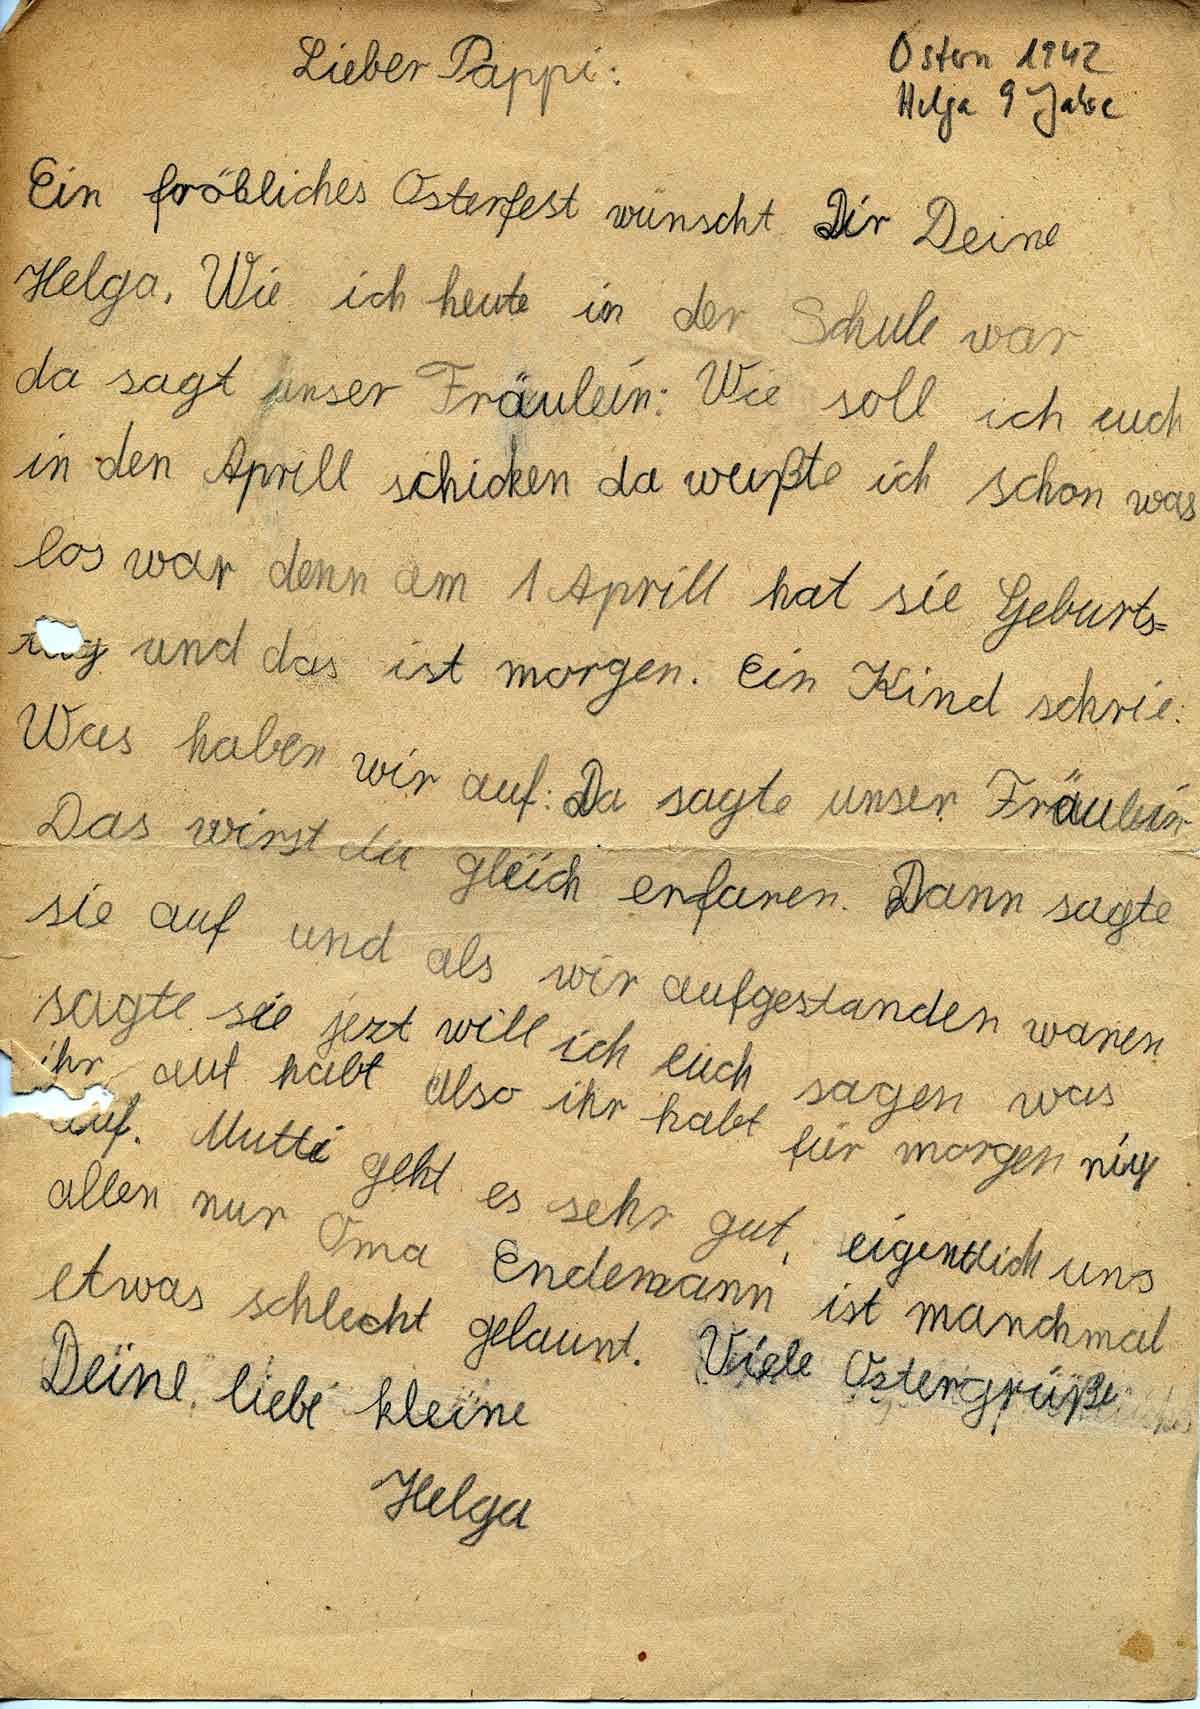 Ostern 1942
Helga 9 Jahre
Lieber Pappi:
Ein fröhliches Osterfest wünscht Dir Deine
Helga. Wie ich heute in der Schule war
da sagt unser Fräulein: Wie soll ich euch
in den Aprill schicken da wußte ich schon was
los war denn am 1 Aprill hat sie Geburts=
tag und das ist morgen. Ein Kind schrie:
Was haben wir auf: Da sagte unser Fräulein
Das wirst du gleich erfaren. Dann sagte
sie auf und als wir aufgestanden waren
sagte sie jezt will ich euch sagen was
ihr auf habt also ihr habt für morgen nix
auf. Mutti geht es sehr gut, eigentlich uns
allen nur Oma Endemann ist manchmal
etwas schlecht gelaunt. Viele Ostergrüße
Deine liebe kleine
Helga